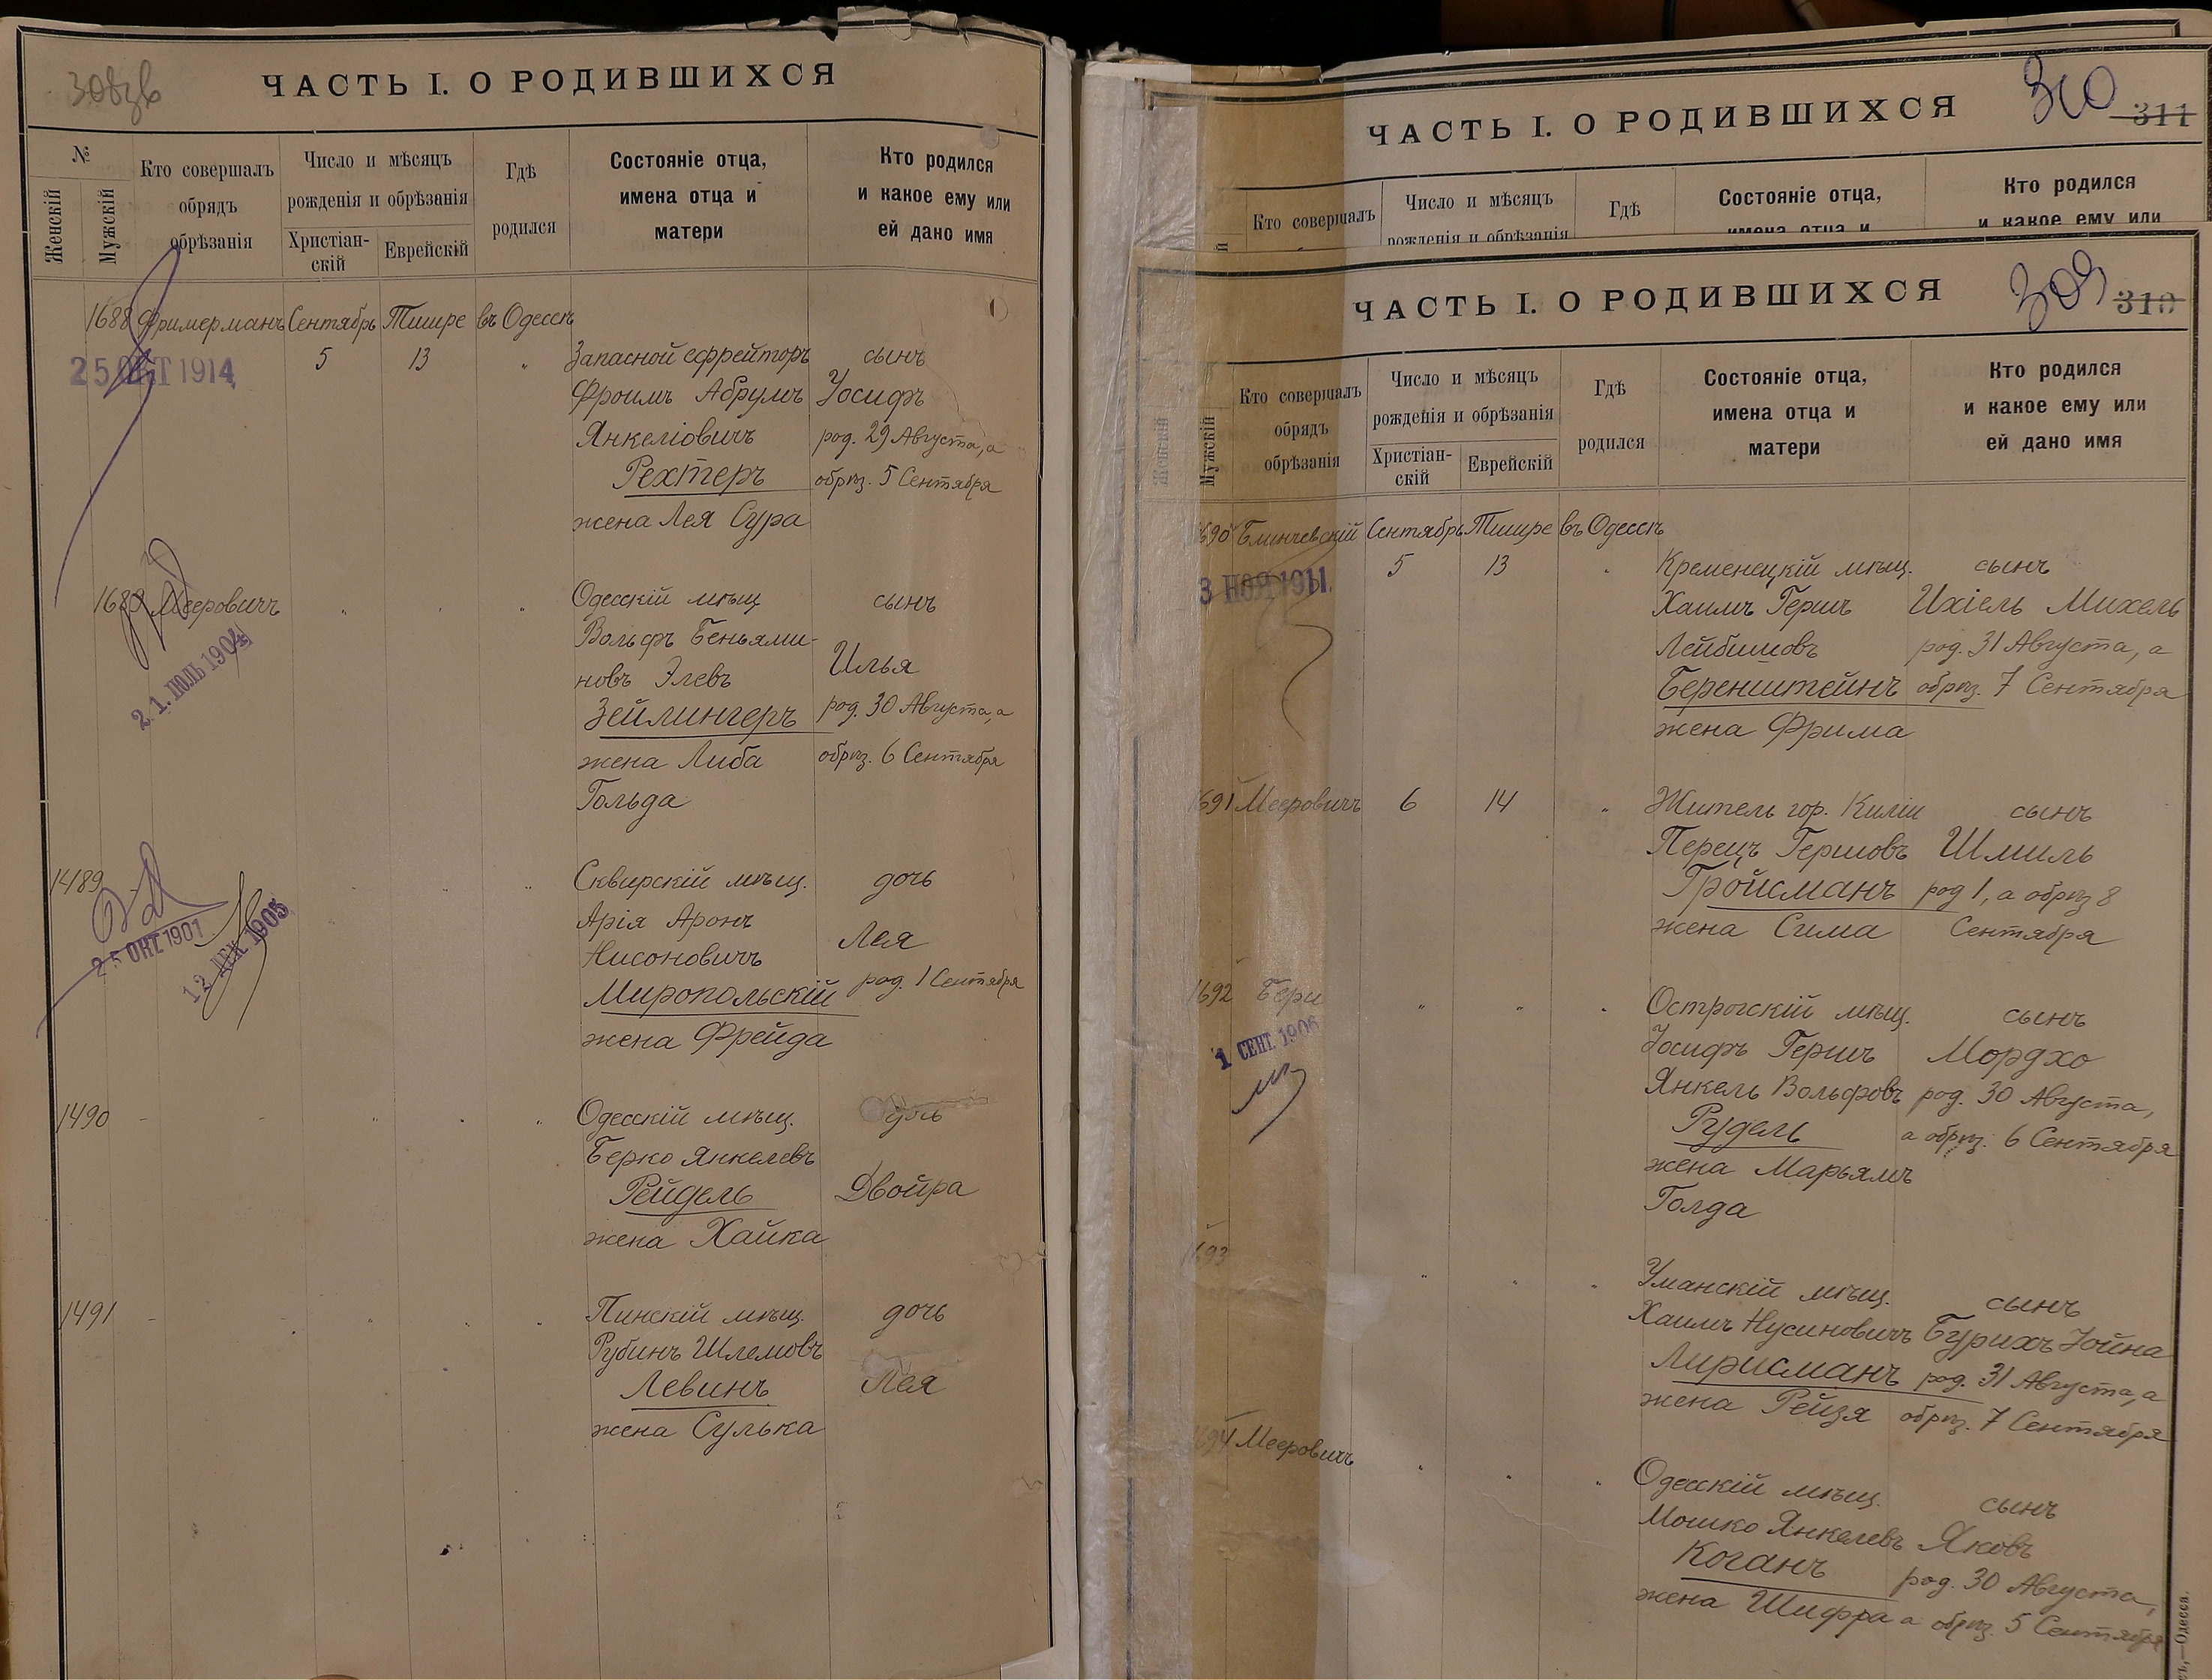 308зв
ЧАСТЬ I. О РОДИВШИХСЯ
№
Женскій
Мужскій
Кто совершалъ
обрядъ
обрѣзанія
Число и мѣсяцъ
рожденія и обрѣзанія
Христіан-
скій
Еврейскій
Гдѣ
родился
Состояніе отца,
имена отца и
матери
Кто родился
и какое ему или
ей дано имя
1688 Фримерманъ Сентябрь Тишре въ Одессѣ
25 ОКТ 1914
5 13 " Запасной ефрейторъ сынъ
Фроимъ Абрумъ Іосифъ
Янкеліовичъ род. 29 Августа, а
Рехтеръ обрѣз. 5 Сентября
жена Лея Сура
1689 Мееровичъ " " " Одесскій мѣщ сынъ
21. ІЮЛЬ 1904
Вольфъ Беньями-
новъ Элевъ Илья
Зейлингеръ род. 30 Августа, а
жена Либа обрѣз. 6 Сентября
Гольда
1489 - " " " Сквирскій мѣщ. дочь
25 ОКТ 1901
12 ДЕК 1905
Арія Аронъ
Нисоновичъ Лея
Миропольскій род. 1 Сентября
жена Фрейда
1490 - - " " " Одесскій мѣщ. дочь
Берко Янкелевъ
Рейдель Двойра
жена Хайка
1491 - " " " Пинскій мѣщ. дочь
Рубинъ Шлемовъ
Левинъ Лея
жена Сулька
310 311
ЧАСТЬ I. О РОДИВШИХСЯ
Кто совершалъ
Число и мѣсяцъ
рожденія и обрѣзанія
Гдѣ
Состояніе отца,
имена отца и
Кто родился
и какое ему или
309 310
ЧАСТЬ I. О РОДИВШИХСЯ
Женскій
Мужскій
Кто совершалъ
обрядъ
обрѣзанія
Число и мѣсяцъ
рожденія и обрѣзанія
Христіан-
скій
Еврейскій
Гдѣ
родился
Состояніе отца,
имена отца и
матери
Кто родился
и какое ему или
ей дано имя
1690 Блинчевскій Сентябрь Тишре въ Одессѣ
3 НОЯ 1911.
5 13 " Кременецкій мѣщ. сынъ
Хаимъ Гершъ Ихіель Михель
Лейбишовъ род. 31 Августа, а
Беренштейнъ обрѣз. 7 Сентября
жена Фрима
1691 Мееровичъ 6 14 " Житель гор. Киліи сынъ
Перецъ Гершовъ Шмиль
Гройсманъ род 1, а обрѣз 8
жена Сима Сентября
1692 Бери " " " Острогскій мѣщ. сынъ
1 СЕНТ. 1906
Іосифъ Гершъ Мордхо
Янкель Вольфовъ род. 30 Августа,
Рудель а обрѣз. 6 Сентября
жена Марьямъ
Голда
1693 " " " Уманскій мѣщ. сынъ
Хаимъ Нусиновичъ Бурихъ Іойна
Лирисманъ род. 31 Августа, а
жена Рейзя обрѣз. 7 Сентября
1694 Мееровичъ " " " Одесскій мѣщ. сынъ
Мошко Янкелевъ Яковъ
Коганъ род. 30 Августа,
жена Шифра а обрѣз. 5 Сентября
Одесса.